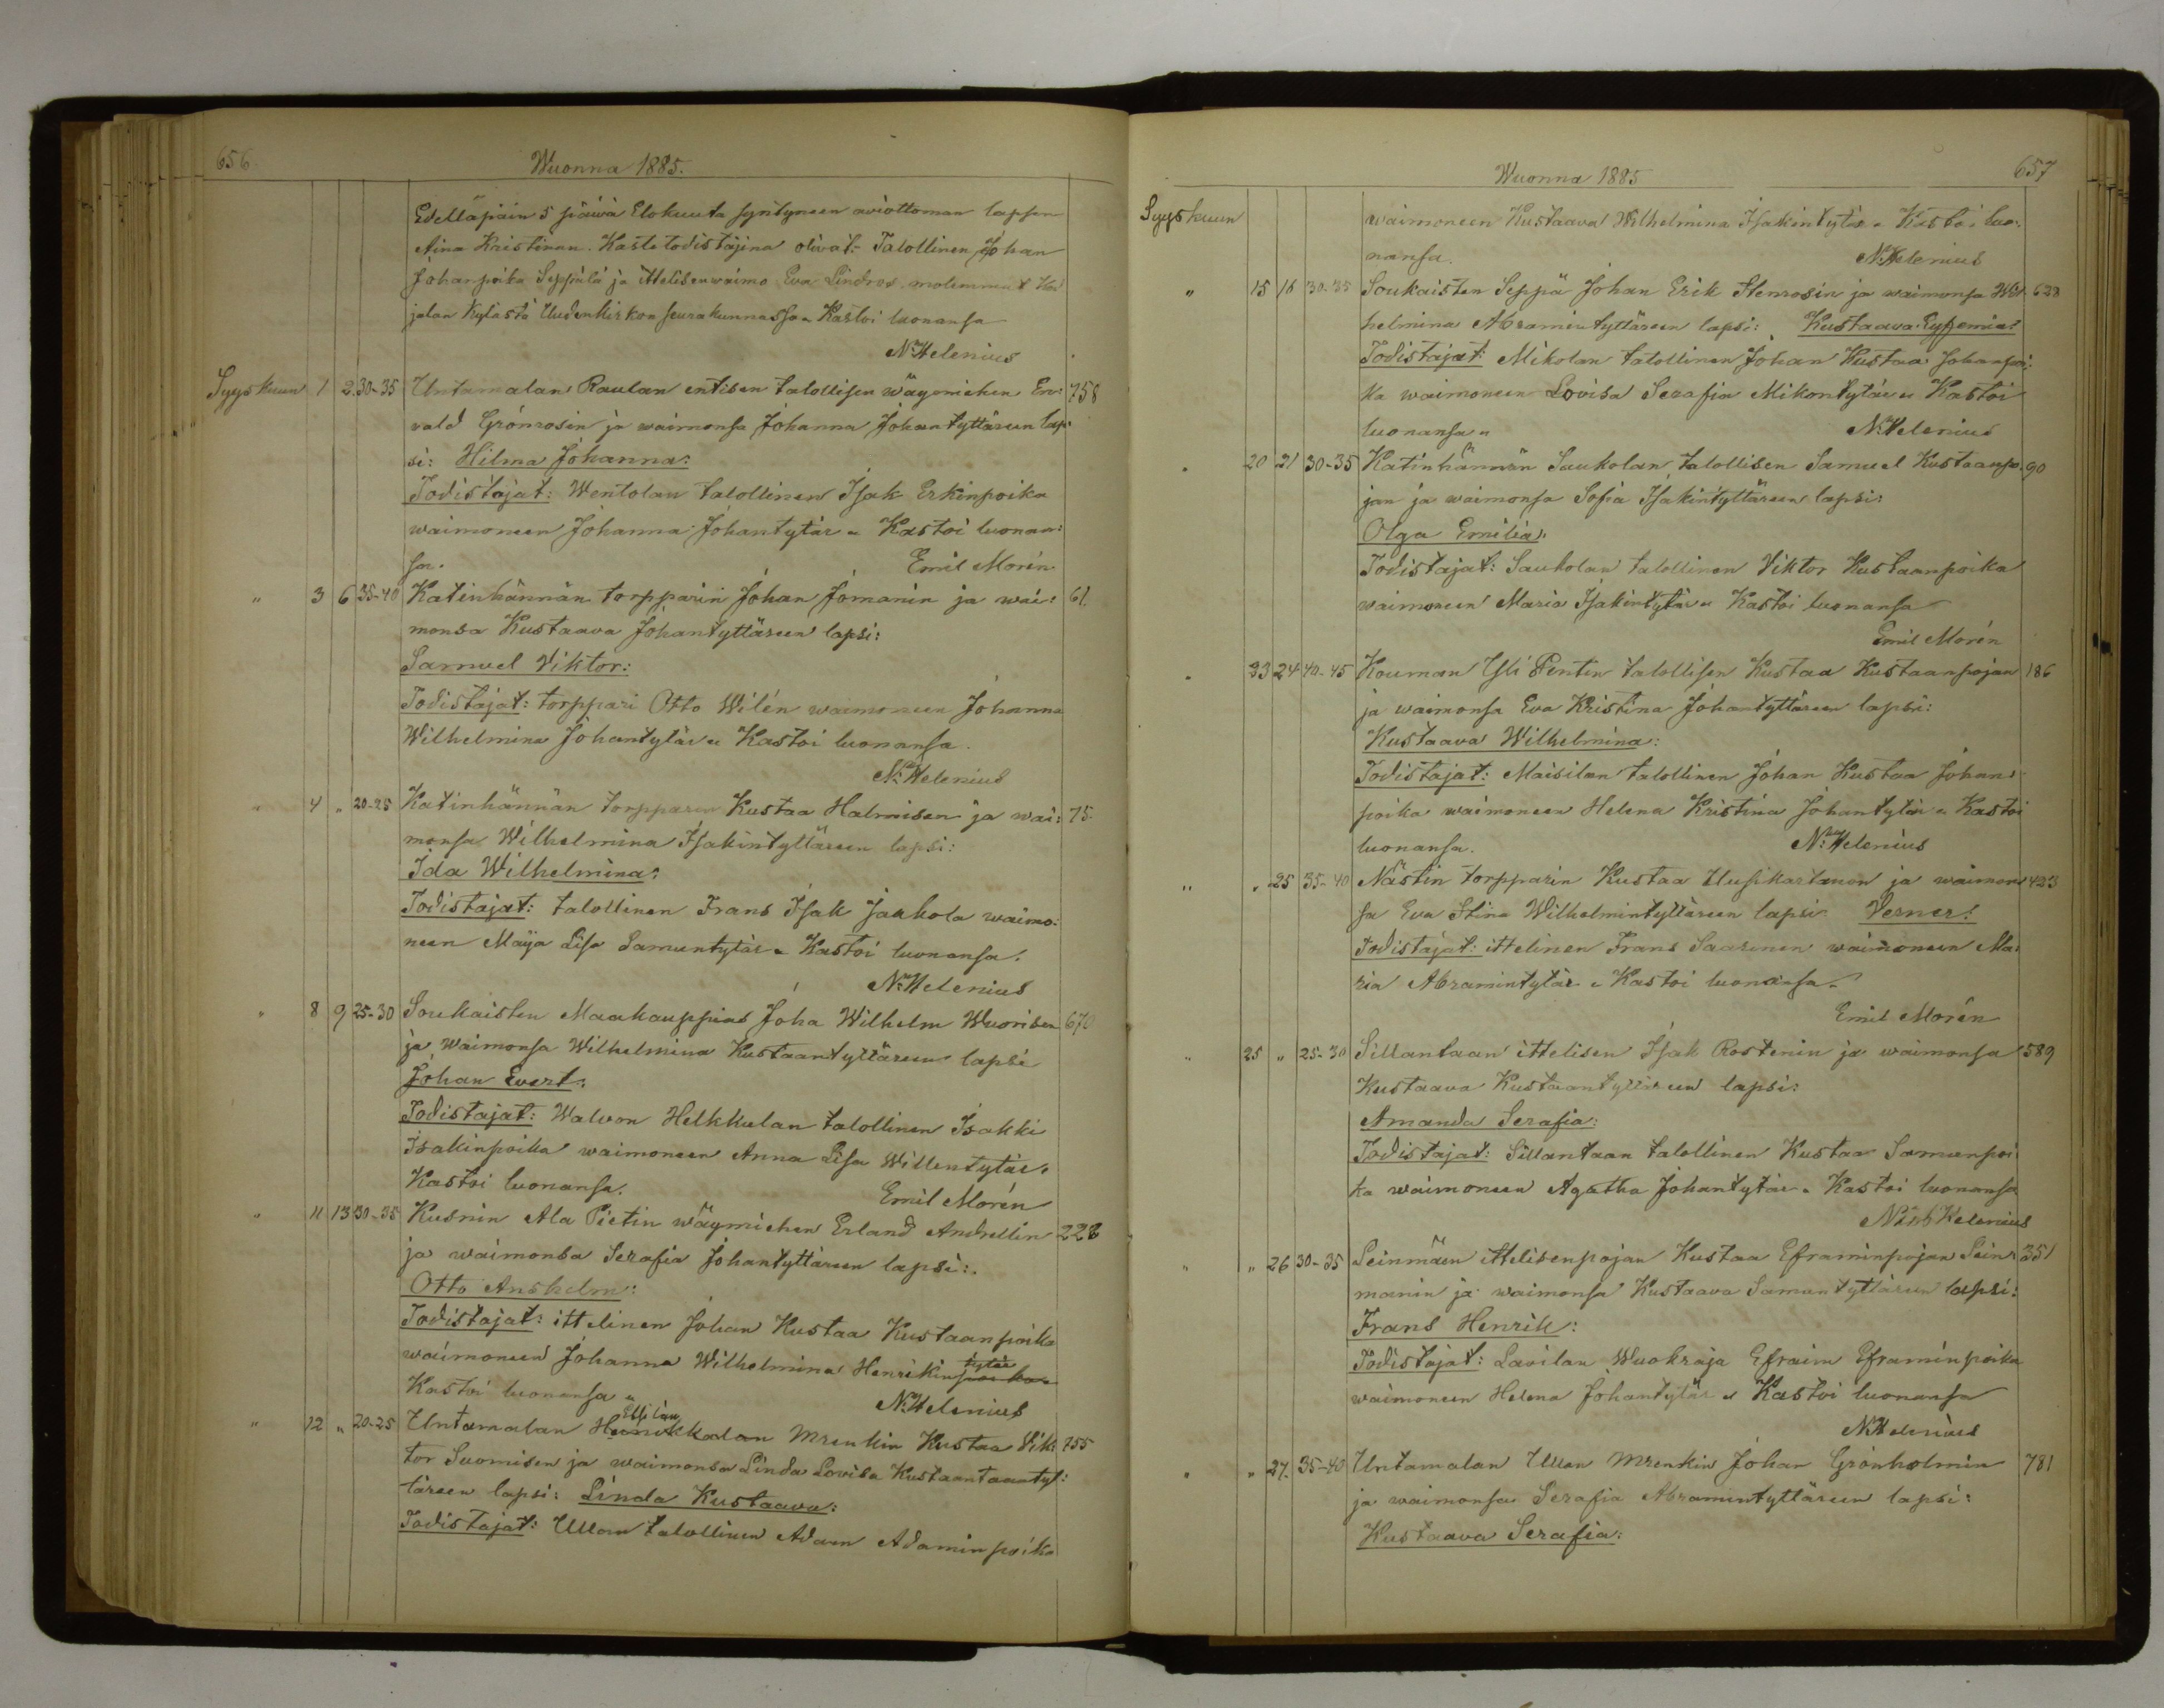 656 Wuonna 1885.
Edelläpäin 5 päiwä Elokuuta syntyneen aviottoman lapsen
Aina Kristinan. Kastetodistajina olivat: Talollinen Johan
Johanpoika Seppälä ja ittelisenwaimo Eva Lindros, molemmat
jalan kylästä Uudenkirkon seurakunnassa. Kastoi luonansa
N. Helenius
Syyskuun 1 2. 30-35 Untamalan Raulan entisen talollisen wäymiehen Er: 758
vald Grönrosin ja waimonsa Johanna Johantyttäreen lap:
si: Hilma Johanna:
Todistajat: Wentolan talollinen Isak Erkinpoika
waimoneen Johanna Johantytär. Kastoi luonan:
sa. Emil Morén
" 3 6 35-40 Katinhännän torpparin Johan Jomanin ja wai: 61.
monsa Kustaava Johantyttäreen lapsi:
Samuel Viktor:
Todistajat: torppari Otto Wilén waimoneen Johanna
Wilhelmina Johantytär. Kastoi luonansa.
N. Helenius
" 4 " 20-25 Katinhännän torpparin Kustaa Halmisen ja wai: 75.
monsa Wilhelmina Isakintyttäreen lapsi:
Ida Wilhelmina:
Todistajat: talollinen Frans Isak Jaakola waimo:
neen Maija Lisa Samuntytär. Kastoi luonansa.
N. Helenius
" 8 9 25-30 Soukaisten Maakauppias Joha Wilhelm Wuorisen 670
ja waimonsa Wilhelmina Kustaantyttäreen lapsi
Johan Evert:
Todistajat: Walvon Helkkulan talollinen Isakki
Isakinpoika waimoneen Anna Lisa Willentytär.
Kastoi luonansa. Emil Morén
" 11 13 30-35 Kusnin Ala Pietin wäymiehen Erland Andellin 228
ja waimonsa Serafia Johantyttäreen lapsi:
Otto Anshelm:
Todistajat: ittelinen Johan Kustaa Kustaanpoika
waimoneen Johanna Wilhelmina Henrikin tytär
Kastoi luonansa " N. Helenius
" 12 " 20-25 Untamalan Mrenkin Kustaa Vik: 755
tor Suomisen ja waimonsa Linda Lovisa Kustaantaantyt:
täreen lapsi: Linda Kustaava:
Todistajat: Ullan talollinen Adam Adaminpoika
Wuonna 1885 657
Syyskuun waimoneen Kustaava Wilhelmina Isakintytär. Kastoi luo:
nansa. N. Helenius
" 15 16 30-35 Soukaisten Seppä Johan Erik Stenrosin ja waimonsa Wil: 628
helmina Abramintyttäreen lapsi: Kustaava Eyfemia:
Todistajat: Mikolan talollinen Johan Kustaa Johanpoi:
ka waimoneen Lovisa Serafia Mikontytär. Kastoi
luonansa " N. Helenius
" 20 21 30-35 Katinhännän Saukolan talollisen Samuel Kustaanpo: 90
jan ja waimonsa Sofia Isakintyttäreen lapsi:
Olga Emilia:
Todistajat: Saukolan talollinen Viktor Kustaanpoika
waimoneen Maria Isakintytär. Kastoi luonansa
Emil Morén
" 23 24 40-45 Kouman Yli Pentin talollisen Kustaa Kustaanpojan 186
ja waimonsa Eva Kristina Johantyttäreen lapsi:
Kustaava Wilhelmina:
Todistajat: Maisilan talollinen Johan Kustaa Johan:
poika waimoneen Helena Kristina Johantytär. Kastoi
luonansa. N. Helenius
" " 25 35-40 Nästin torpparin Kustaa Uusikartanon ja waimon: 423
sa Eva Stina Wilhelmintyttäreen lapsi: Verner:
Todistajat: ittelinen Frans Saarinen waimoneen Ma:
ria Abramintytär. Kastoi luonansa.
Emil Morén
" 25 " 25-30 Sillantaan ittelisen Isak Rostenin ja waimonsa 589
Kustaava Kustaantyttäreen lapsi:
Amanda Serafia:
Todistajat: Sillantaan talollinen Kustaa Samunpoi
ka waimoneen Agatha Johantytär. Kastoi luonansa
Helenius
" " 26 30-35 Seinmäen ittelisenpojan Kustaa Eframinpojan Sein: 351
manin ja waimonsa Kustaava Samuntyttäreen lapsi:
Frans Henrik:
Todistajat: Lavilan Wuokraja Efraim Eframinpoika
waimoneen Helena Johantytär. Kastoi luonansa
N. Helenius
" " 27. 35-40 Untamalan Ullan Mrenkin Johan Grönholmin 781
ja waimonsa Serafia Abramintyttäreen lapsi:
Kustaava Serafia: